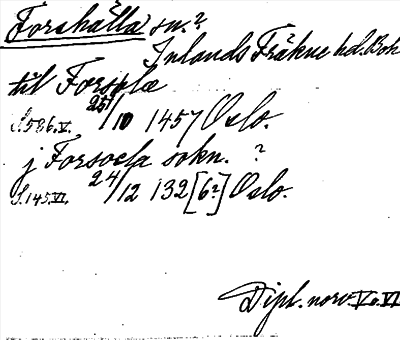 Forshälla sn.?
Inlands Fräkne hd. Boh
til Forsola
S. 586. V. 25/10 1457 Oslo.
j Forsocla sokn. ?
S. 145. VI. 24/12 132[6?] Oslo.
Dipl. norv. V o. VI